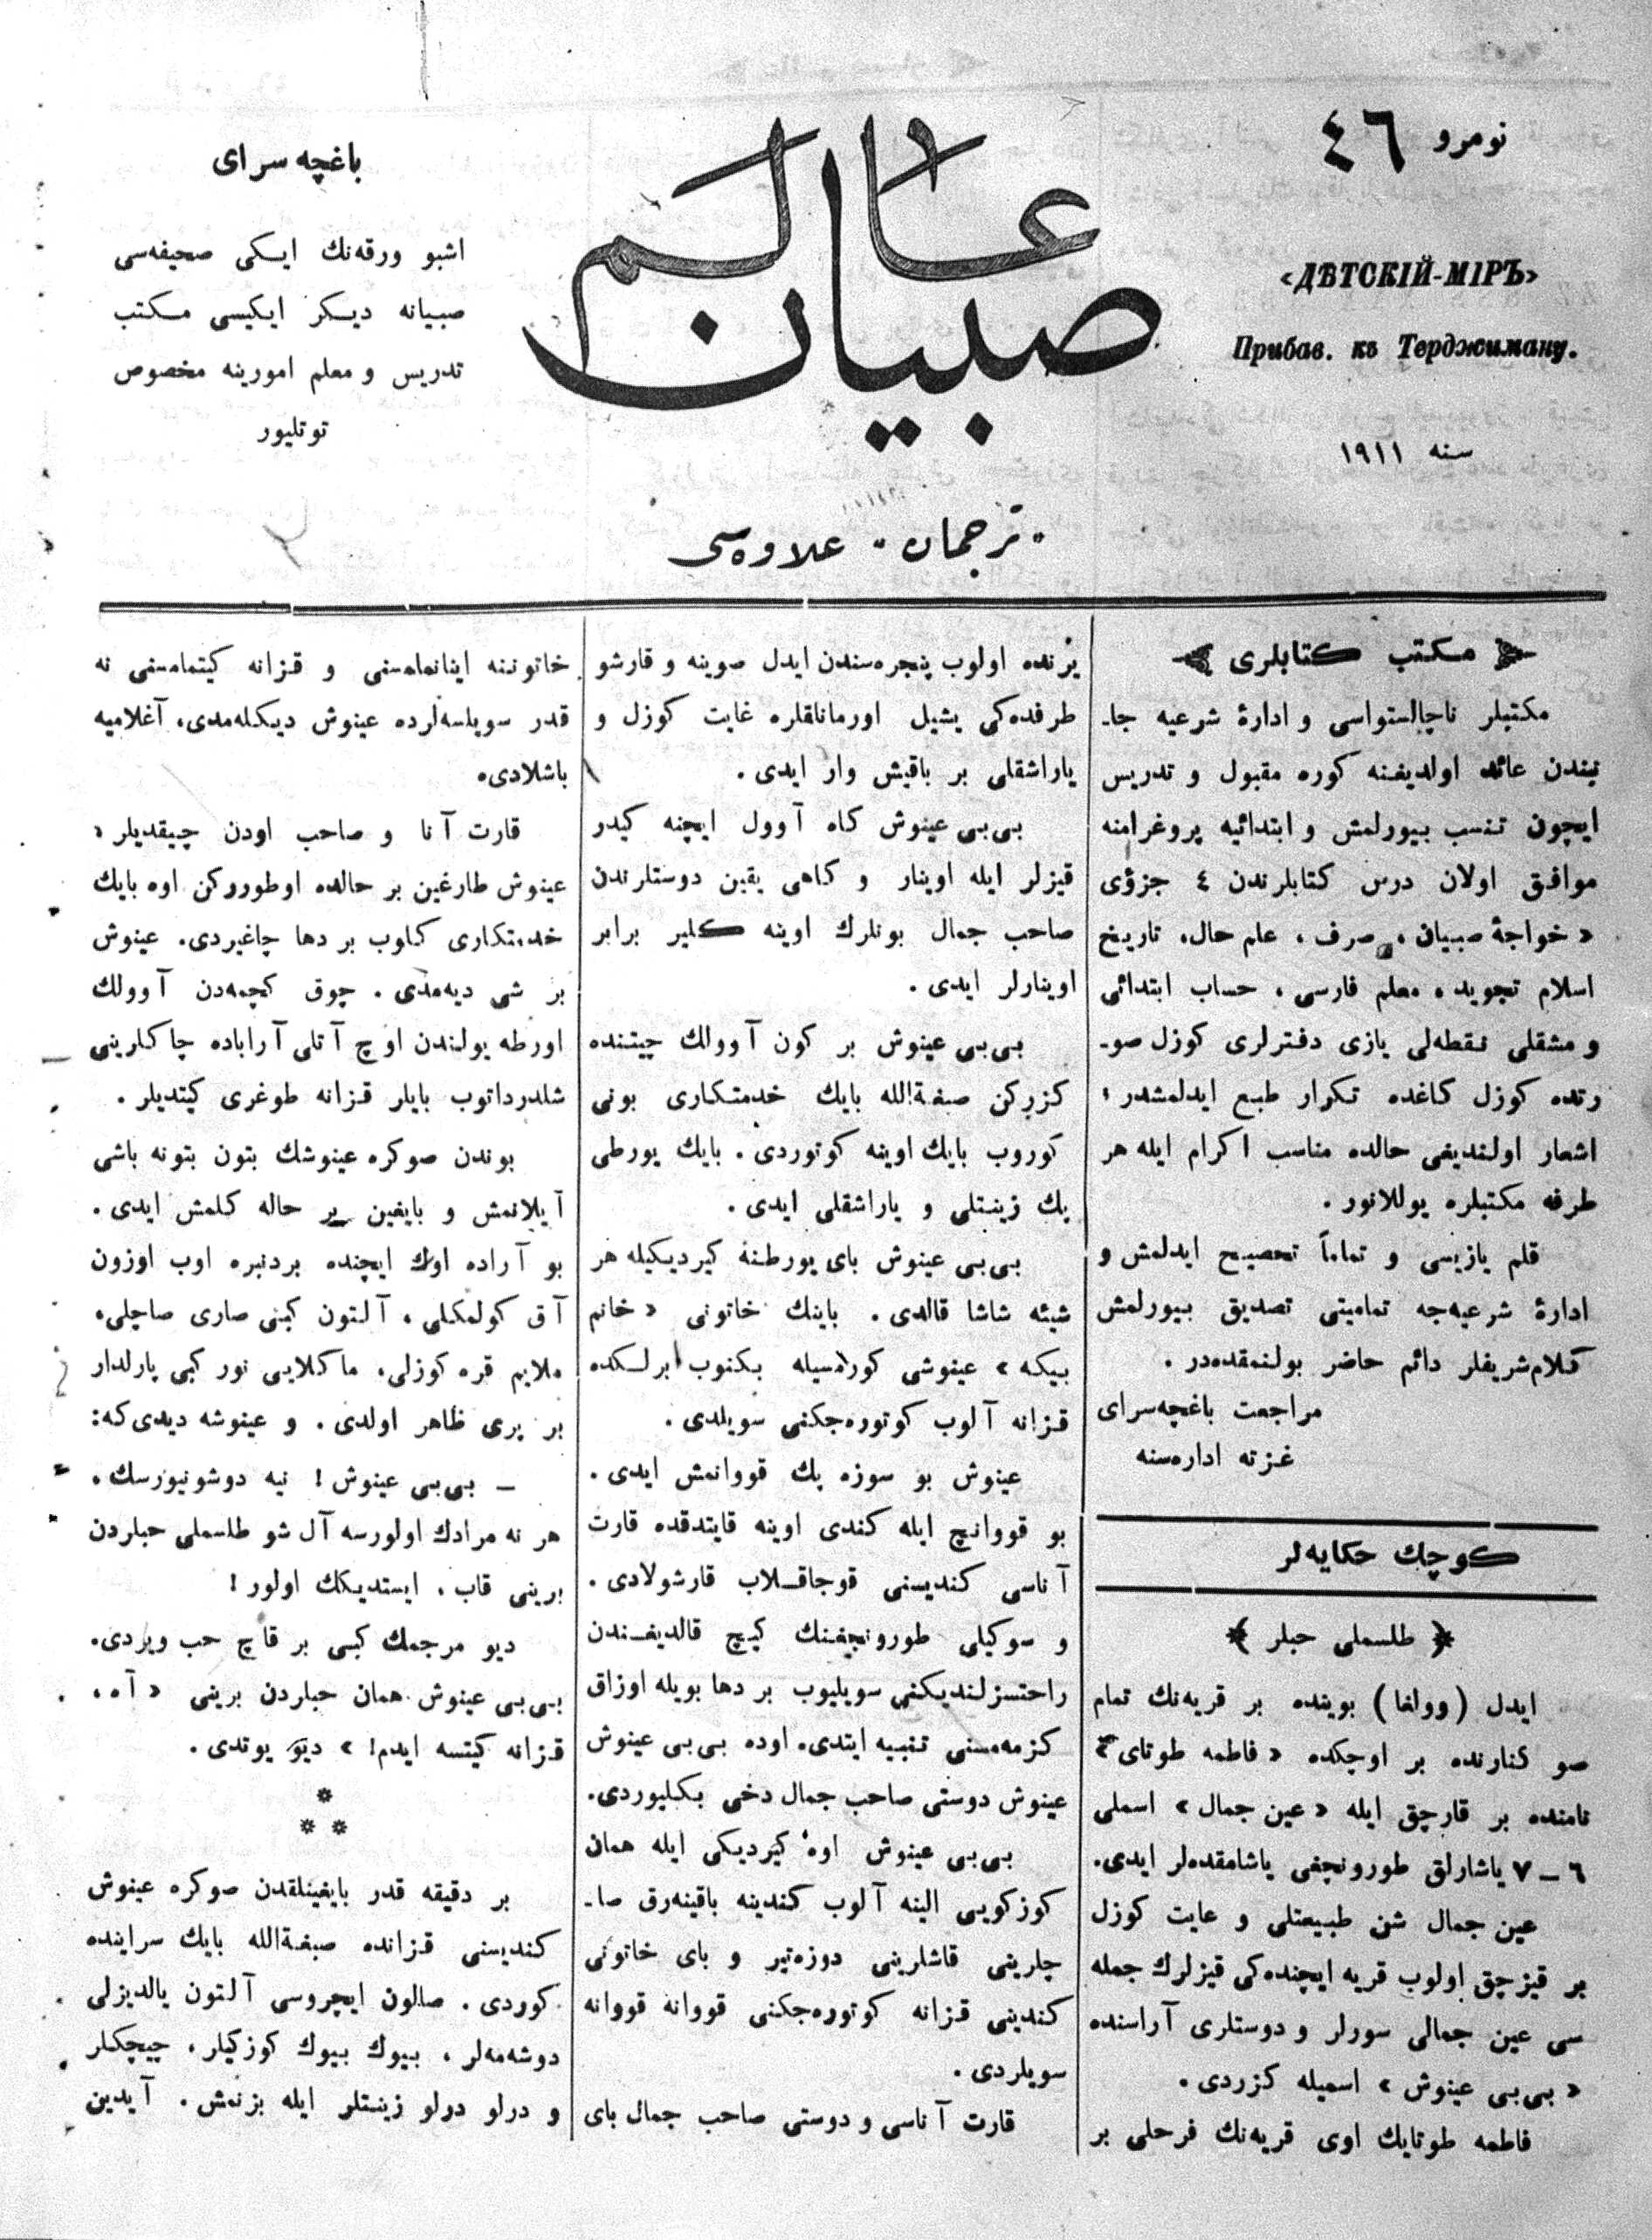 نومرو ٤٦
«ДѢТСКІЙ-МІРЪ»
Прибав. къ Терджиману.
سنه ١٩١١
عالم صبيان
"ترجمان" علاوه‌سى
باغچه سراى
اشبو ورقه‌نك ايكى صحيفه‌سى
صبيانه ديكر ايكيسى مكتب
تدريس و معلم امورينه مخصوص
توتليور
مكتب كتابلرى
مكتبلر ناچالستواسى و ادارۀ شرعيه جا-
نبندن عائد اولديغنه كوره مقبول و تدريس
ايچون تنسب بيورلمش و ابتدائيه پروغرامنه
موافق اولان درس كتابلرندن ٤ جزؤى
«خواجۀ صبيان، صرف، علم حال، تاريخ
اسلام تجويد، معلم فارسى، حساب ابتدائى
و مشقلى نقطه‌لى يازى دفترلرى كوزل صو-
رتده كوزل كاغده تكرار طبع ايدلمشدر؛
اشعار اولنديغى حالده مناسب اكرام ايله هر
طرفه مكتبلره يوللانور.
قلم يازيسى و تماماً تصحيح ايدلمش و
ادارۀ شرعيه‌جه تماميتى تصديق بيورلمش
كلام‌شريفلر دائم حاضر بولنمقده‌در.
مراجعت باغچه‌سراى
غزته اداره‌سنه
كوچك حكايه‌لر
﴿ طلسملى حبلر ﴾
ايدل (وولغا) بوينده بر قريه‌نك تمام
صو كنارنده بر اوجكده «فاطمه طوتاى»
نامنده بر قارچق ايله «عين جمال» اسملى
٦-٧ ياشارلق طورونچغى ياشامقده‌لر ايدى.
عين جمال شن طبيعتلى و غايت كوزل
بر قيزچق اولوب قريه ايچنده‌كى قيزلرك جمله
سى عين جمالى سورلر و دوستلرى آراسنده
«بى‌بى عينوش» اسميله كزردى.
فاطمه طوتايك اوى قريه‌نك فرحلى بر
يرنده اولوب پنجره‌سندن ايدل صوينه و قارشو
طرفده‌كى يشيل اورمانلقلره غايت كوزل و
ياراشقلى بر باقيش وار ايدى.
بى‌بى عينوش كاه آوول ايچنه كيدر
قيزلر ايله اوينار و كاهى يقين دوستلرندن
صاحب جمال بونلرك اوينه كلير برابر
اوينارلر ايدى.
بى‌بى عينوش بر كون آوولك چيتنده
كزركن صبغةالله بايك خدمتكارى بونى
كوروب بايك اوينه كوتوردى. بايك يورطى
پك زينتلى و ياراشقلى ايدى.
بى‌بى عينوش باى يورطنه كيرديكيله هر
شيئه شاشا قالدى. باينك خاتونى «خانم
بيكه» عينوشى كورمسيله بكنوب برلكده
قزانه آلوب كوتوره‌جكنى سويلدى.
عينوش بو سوزه پك قووانمش ايدى.
بو قووانچ ايله كندى اوينه قايتدقده قارت
آناسى كنديسنى قوجاقلاب قارشولادى.
و سوكيلى طورونچغنك كيچ قالديغندن
راحتسزلنديكنى سويليوب بر دها بويله اوزاق
كزمه‌مسنى تنبيه ايتدى. اوده بى‌بى عينوش
عينوش دوستى صاحب جمال دخى بكليوردى.
بى‌بى عينوش اوه كيرديكى ايله همان
كوزكويى الينه آلوب كندينه باقينه‌رق صا-
چلرينى قاشلرينى دوزه‌تير و باى خاتونى
كندينى قزانه كوتوره‌جكنى قووانه قووانه
سويلردى.
قارت آناسى و دوستى صاحب جمال باى
خاتوننه اينانمامسنى و قزانه كيتمامسنى نه
قدر سويلسه‌لرده عينوش ديكله‌مدى، آغلاميه
باشلادى.
قارت آنا و صاحب اودن چيقديلر؛
عينوش طارغين بر حالده اوطوروركن اوه بايك
خدمتكارى كلوب بر دها چاغيردى. عينوش
بر شى ديه‌مدى. چوق كچمه‌دن آوولك
اورطه يولندن اوچ آتلى آراباده چاكلرينى
شلدرداتوب بايلر قزانه طوغرى كيتديلر.
بوندن صوكره عينوشك بتون بتونه باشى
آيلانمش و بايغين بر حاله كلمش ايدى.
بو آراده اوك ايچنده بردنبره اوب اوزون
آق كولمكلى، آلتون كبى صارى صاچلى،
ملايم قره كوزلى، ماكلايى نور كبى پارلدار
بر پرى ظاهر اولدى. و عينوشه ديدى‌كه:
— بى‌بى عينوش! نيه دوشونيورسك.
هر نه مرادك اولورسه آل شو طلسملى حبلردن
برينى قاب، ايستديكك اولور!
ديو مرجمك كبى بر قاچ حب ويردى.
بى‌بى عينوش همان حبلردن برينى «آه،
قزانه كيتسه ايدم!» ديو يوتدى.
* * *
بر دقيقه قدر بايغينلقدن صوكره عينوش
كنديسنى قزانده صبغةالله بايك سراينده
كوردى. صالون ايچروسى آلتون يالديزلى
دوشه‌مه‌لر، بيوك بيوك كوزكيلر، چيچكلر
و درلو درلو زينتلر ايله بزنمش. آيدين